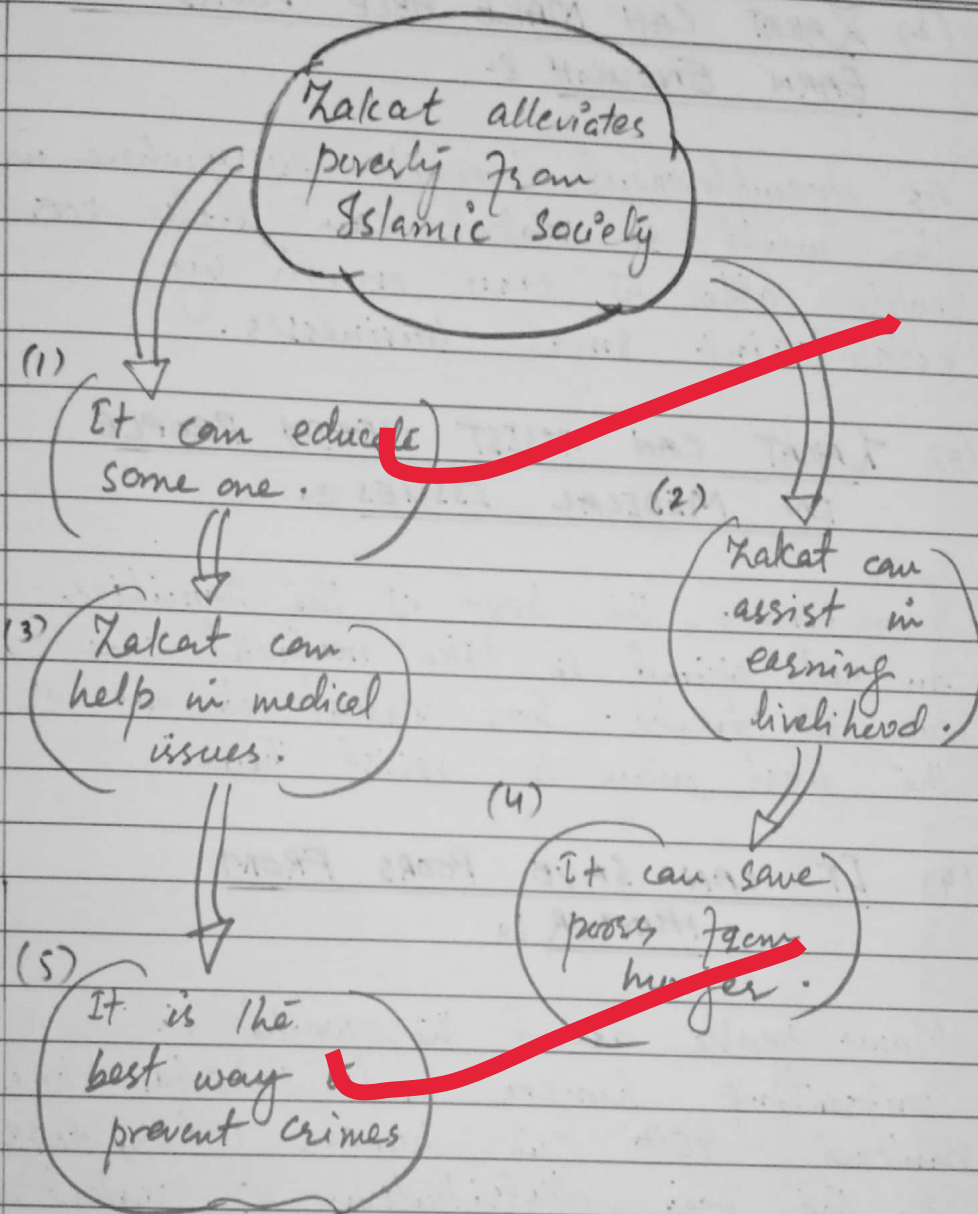 Zakat alleviates
poverty from
Islamic society
(1)
It can educate
some one.
(2)
Zakat can
assist in
earning
livelihood.
(3)
Zakat can
help in medical
issues.
(4)
It can save
poors from
hunger.
(5)
It is the
best way to
prevent crimes